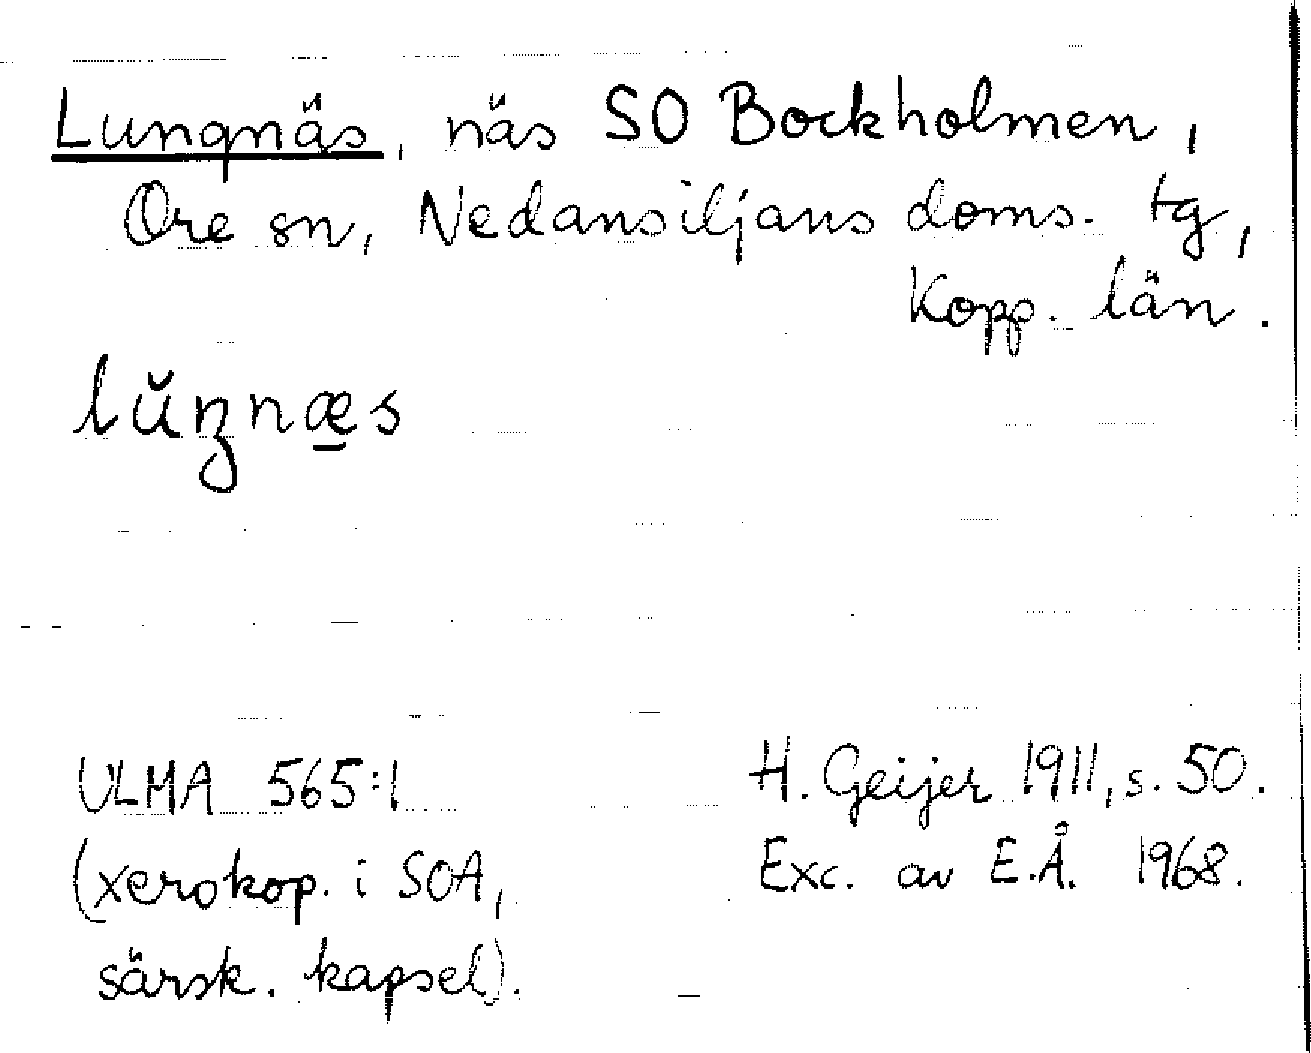 Lungnäs, näs SO Bockholmen,
Ore sn, Nedansiljans doms. tg,
Kopp. län.
lŭŋnæ̱s
ULMA 565:1
(xerokop. i SOA,
särsk. kapsel).
H. Geijer 1911, s. 50.
Exc. av E.Å. 1968.